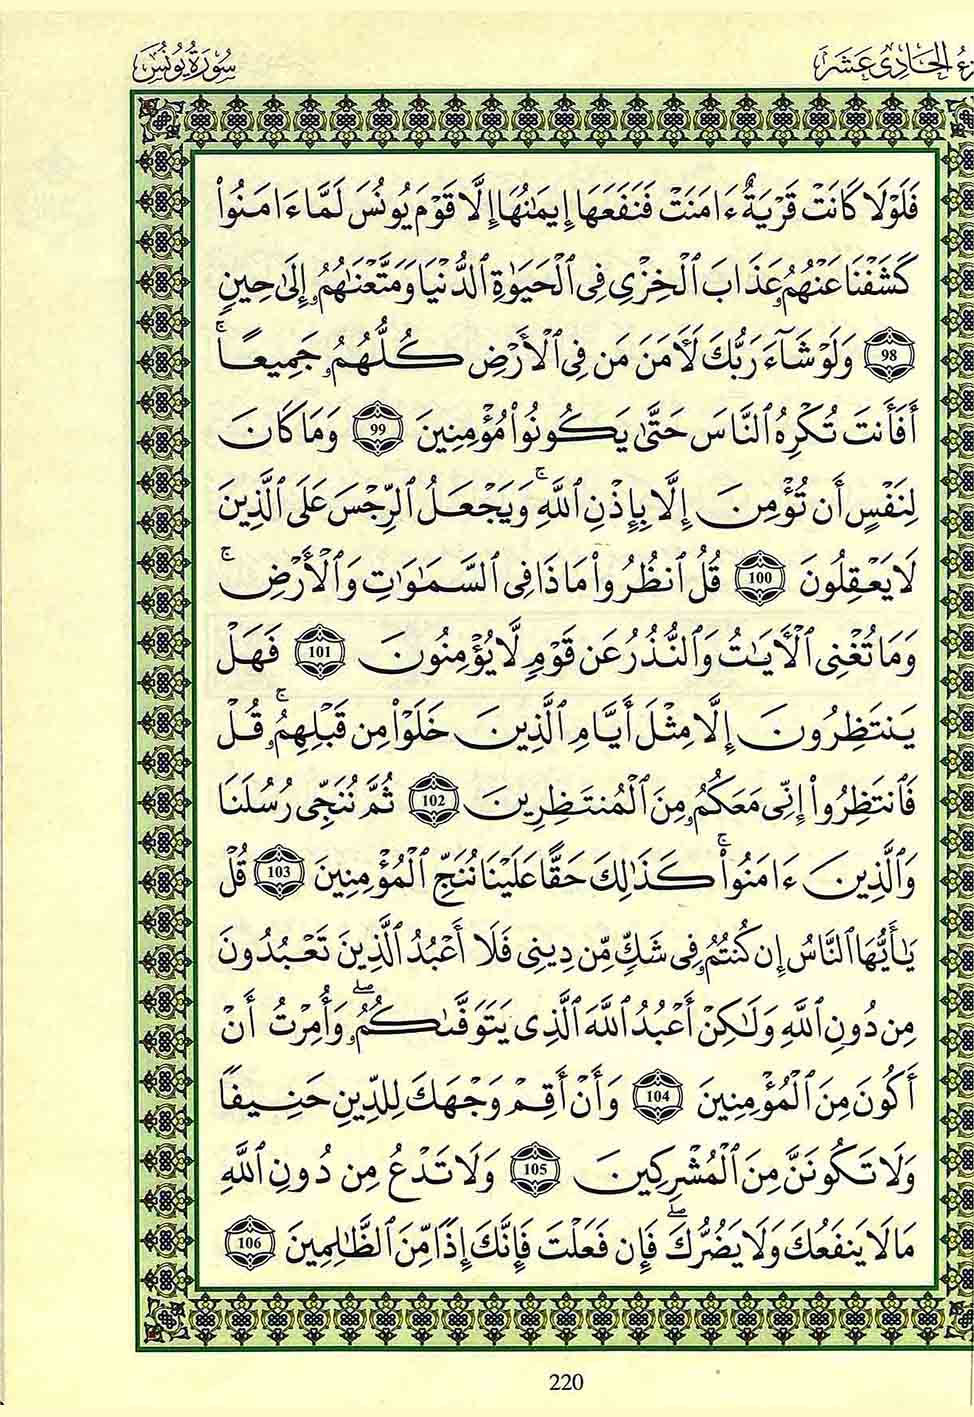 سُورَةُ يُونُسَ
الحَادِي عَشَرَ
فَلَوْلَا كَانَتْ قَرْيَةٌ ءَامَنَتْ فَنَفَعَهَا إِيمَٰنُهَا إِلَّا قَوْمَ يُونُسَ لَمَّا ءَامَنُوا۟
كَشَفْنَا عَنْهُمُۥ عَذَابَ ٱلْخِزْىِ فِى ٱلْحَيَوٰةِ ٱلدُّنْيَا وَمَتَّعْنَٰهُمُۥ إِلَىٰ حِينٍ
98 وَلَوْ شَآءَ رَبُّكَ لَأٓمَنَ مَن فِى ٱلْأَرْضِ كُلُّهُمُۥ جَمِيعًا ۚ
أَفَأَنتَ تُكْرِهُ ٱلنَّاسَ حَتَّىٰ يَكُونُوا۟ مُؤْمِنِينَ 99 وَمَا كَانَ
لِنَفْسٍ أَن تُؤْمِنَ إِلَّا بِإِذْنِ ٱللَّهِ ۚ وَيَجْعَلُ ٱلرِّجْسَ عَلَى ٱلَّذِينَ
لَا يَعْقِلُونَ 100 قُلُ ٱنظُرُوا۟ مَاذَا فِى ٱلسَّمَٰوَٰتِ وَٱلْأَرْضِ ۚ
وَمَا تُغْنِى ٱلْأَيَٰتُ وَٱلنُّذُرُ عَن قَوْمٍ لَّا يُؤْمِنُونَ 101 فَهَلْ
يَنتَظِرُونَ إِلَّا مِثْلَ أَيَّامِ ٱلَّذِينَ خَلَوْا۟ مِن قَبْلِهِمُۥ ۚ قُلْ
فَٱنتَظِرُوا۟ إِنِّى مَعَكُمُۥ مِنَ ٱلْمُنتَظِرِينَ 102 ثُمَّ نُنَجِّى رُسُلَنَا
وَٱلَّذِينَ ءَامَنُوا۟ ۚ كَذَٰلِكَ حَقًّا عَلَيْنَا نُنَجِّ ٱلْمُؤْمِنِينَ 103 قُلْ
يَٰٓأَيُّهَا ٱلنَّاسُ إِن كُنتُمُۥ فِى شَكٍّ مِّن دِينِى فَلَا أَعْبُدُ ٱلَّذِينَ تَعْبُدُونَ
مِن دُونِ ٱللَّهِ وَلَٰكِنْ أَعْبُدُ ٱللَّهَ ٱلَّذِى يَتَوَفَّىٰكُمُۥ ۖ وَأُمِرْتُ أَنْ
أَكُونَ مِنَ ٱلْمُؤْمِنِينَ 104 وَأَنْ أَقِمْ وَجْهَكَ لِلدِّينِ حَنِيفًا
وَلَا تَكُونَنَّ مِنَ ٱلْمُشْرِكِينَ 105 وَلَا تَدْعُ مِن دُونِ ٱللَّهِ
مَا لَا يَنفَعُكَ وَلَا يَضُرُّكَ ۖ فَإِن فَعَلْتَ فَإِنَّكَ إِذًا مِّنَ ٱلظَّٰلِمِينَ 106
220